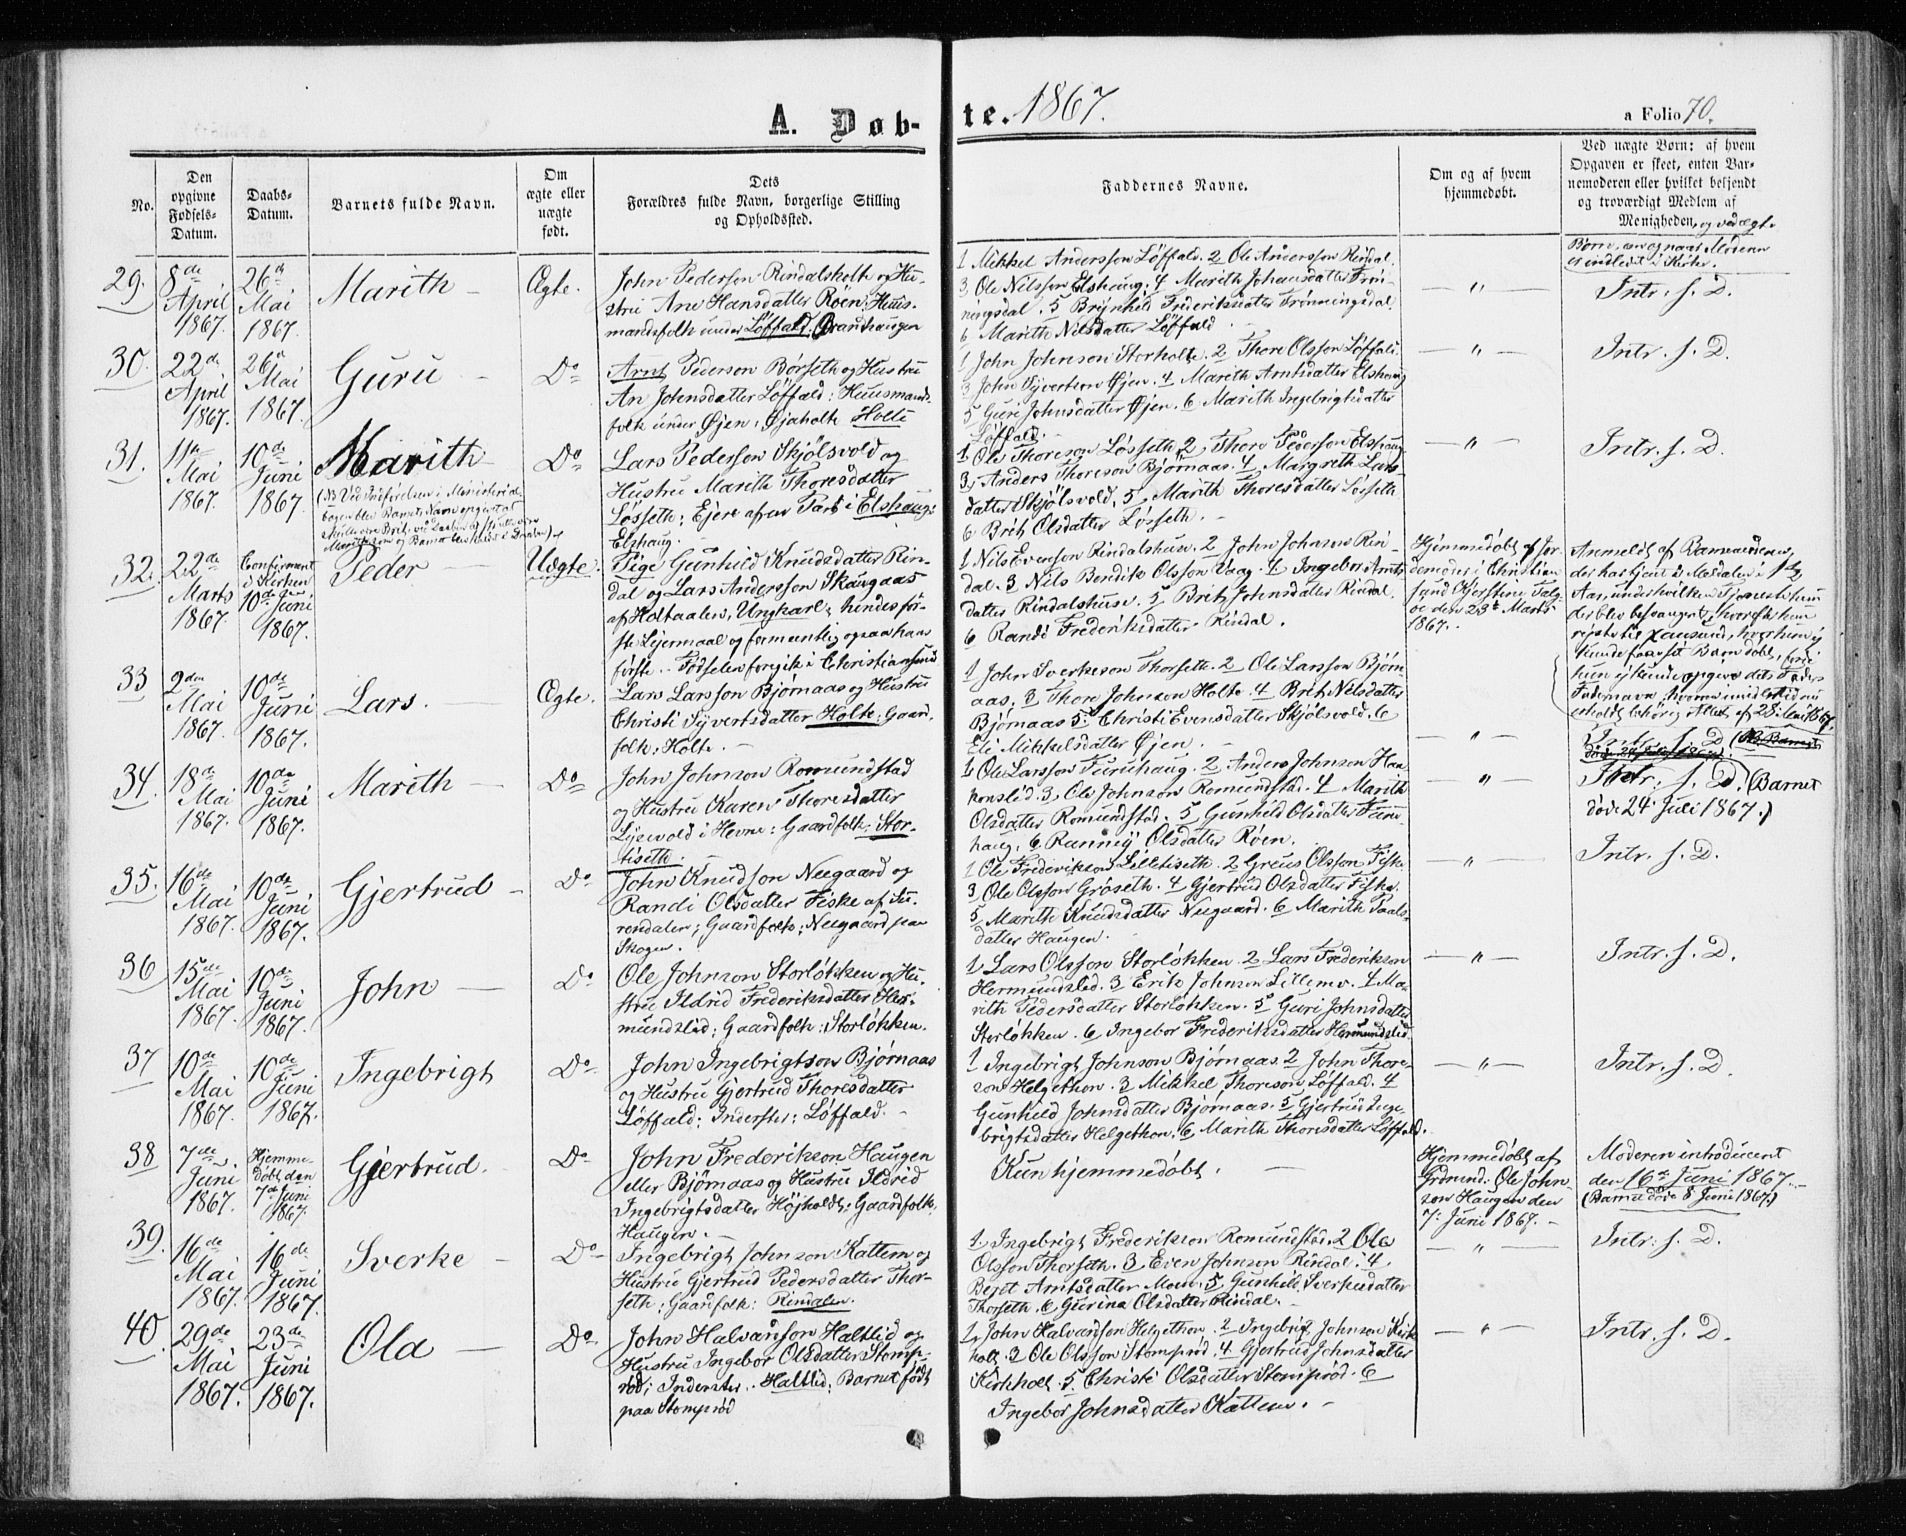 A. Døb-
te. 1867.
a Folio 70.
No.
Den opgivne Fødsels-Datum.
Daabs-Datum.
Barnets fulde Navn.
Om ægte eller uægte født.
Dets Forældres fulde Navn, borgerlige Stilling og Opholdssted.
Faddernes Navne.
Om og af hvem hjemmedøbt.
Ved uægte Børn: af hvem Opgaven er skeet, enten Barnemoderen eller hvilket bekjendt og troværdigt Medlem af Menigheden,
29.
8de April 1867.
26de Mai 1867.
Marith
Ægte.
John Pederson Rindalsholt og Hu-
stru Ane Hansdatter Røen: Huus-
mandsfolk under Løffald: Brandhaugen
1 Mikkel Andersson Løffald. 2 Ole Andersson Rindal.
3 Ole Nilsson Elshaug. 4 Marith Johansdatter Trøn-
ningsdal. 5 Brynhild Frederiksdatter Trønningsdal.
6 Marith Nilsdatter Løffald
— " —
Intr. s. D.
30.
22de April 1867.
26de Mai 1867.
Guru
Do
Arnt Pederson Børseth og Hustru
An Johnsdatter Løffald: Huusmands-
folk under Øjen, Øjaholte Holte
1 John Johnson Storholte. 2 Thore Olsson Løffald.
3 John Syvertson Øjen. 4 Marith Arntsdatter Elshaug
5 Guri Johnsdatter Øjen. 6 Marith Ingebrigtsdatter
Løffald.
— " —
Intr. s. D.
31.
11te Mai 1867.
10de Juni 1867.
Marith
Do
Lars Pederson Skjølsvold og
Hustru Marith Thoresdatter
Løsseth: Ejere af en Part i Elshaug:
Elshaug.
1 Ole Thoreson Løsseth 2 Thore Pederson Elshaug
3 Anders Thoreson Bjørnaas. 4 Margreth Lars-
datter Skjølsvold. 5 Marith Thoresdatter Løsseth
6 Brit Olsdatter Løsseth.
— " —
Intr. s. D.
32.
22de Marts 1867.
Confirmeret i Kirken 10de Juni 1867.
Peder
Uægte.
Pige Gunhild Knudsdatter Rin-
dal og Lars Andersson Skaugaas
af Holtaalen, Ungkarl; hendes før-
ste Lejermaal og formentlig ogsaa hans
første. Fødselen foregik i Christiansund
1 Nils Evenson Rindalshuse. 2 John Johnson Rin-
dal. 3 Nils Bendik Olsson Vaag. 4 Ingebor Arnts
datter Rindalshuse. 5 Brit Johnsdatter Rindal.
6 Randi Frederiksdatter Rindal.
Hjemmedøbt af Jor-
demoder i Christian
sund Gjertine Talg-
øe den 23de Marts
1867.
Anmeldt af Barnemoderen,
33
2den Mai 1867.
10de Juni 1867.
Lars.
Ægte.
Lars Larsson Bjørnaas og Hustru
Christi Syvertsdatter Holte: Gaard
folk: Holte.
1 John Sverkeson Thorseth. 2 Ole Larsson Bjørn-
aas. 3 Thore Johnson Holte. 4 Brit Nilsdatter
Bjørnaas 5. Christi Evensdatter Skjølsvold. 6
Eli Mikkelsdatter Øjen.
— " —
Intr. s. D.
34.
18de Mai 1867.
10de Juni 1867.
Marith
Do
John Johnson Romundstad
og Hustru Karen Thoresdatter
Lysevold i Hevne: Gaardfolk: Stor-
tiseth.
1 Ole Larsson Furuhaug. 2 Anders Johnson Haa-
konslid. 3 Ole Johnson Romundstad. 4 Marith
Olsdatter Romundstad. 5 Gunhild Olsdatter Furu
haug. 6 Rannej Olsdatter Røen.
— " —
Intr. s. D. (Barnet
døde 24 Juli 1867.)
35.
16de Mai 1867.
10de Juni 1867.
Gjertrud
Do
John Knudson Neegaard og
Randi Olsdatter Fiske af Su-
rendalen; Gaardfolk; Neegaard paa
Skogen.
1 Ole Frederikson Lilletiseth. 2 Greus Olsson Fiske
3 Ole Olsson Grøseth. 4 Gjertrud Olsdatter Fiske.
5 Marith Knudsdatter Neegaard. 6 Marith Paals-
datter Haugen.
— " —
Intr. s. D.
36
15de Mai 1867.
10de Juni 1867.
John
Do
Ole Johnson Storløkken og Hu-
stru Ildrid Frederiksdatter Her-
mundslid: Gaardfolk: Storløkken.
1 Lars Olsson Storløkken. 2 Lars Frederikson
Hermundslid. 3 Erik Johnson Lillemo. 4 Ma-
rith Pedersdatter Storløkken. 5 Guri Johnsdatter
Storløkken. 6 Ingebor Frederiksdatter Hermundslid.
— " —
Intr. s. D.
37
10de Mai 1867.
10de Juni 1867.
Ingebrigt
Do
John Ingebrigtson Bjørnaas
og Hustru Gjertrud Thoresdatter
Løffald: Inderster: Løffald.
1 Ingebrigt Johnson Bjørnaas 2 John Thore-
son Helgethon. 3 Mikkel Thoreson Løffald. 4
Gunhild Johnsdatter Bjørnaas. 5 Gjertrud Inge-
brigtsdatter Helgethon. 6 Marith Thoresdatter Løffald.
— " —
Intr. s. D.
38
7de Juni 1867.
Hjemme-døbt den 7de Juni 1867.
Gjertrud.
Do
John Frederikson Haugen
eller Bjørnaas og Hustru Ildrid
Ingebrigtsdatter Højholdt: Gaardfolk.
Haugen.
Kun hjemmedøbt.
Hjemmedøbt af
Grdmand: Ole John-
son Haugen den
7: Juni 1867.
Moderen introduceret
den 16de Juni 1867.
(Barnet døde 8 Juni 1867.)
39.
16de Mai 1867.
16de Juni 1867.
Sverke
Do
Ingebrigt Johnson Kattem og
Hustru Gjertrud Pedersdatter Thor-
seth; Gaardfolk: Rindalen.
1 Ingebrigt Frederikson Romundstad 2 Ole
Olsson Thorseth. 3 Even Johnson Rindal. 4
Berit Arntsdatter Moen. 5 Gunhild Sverkesdatter
Thorseth. 6 Gurina Olsdatter Rindal.
— " —
Intr: s. D.
40.
29de Mai 1867.
23de Juni 1867.
Ola
Do
John Halvardson Haltlid og
Hustru Ingebor Olsdatter Stomp-
rød; Inderster. Haltlid: Barnet født
paa Stomprød
1. John Halvardson Helgethon. 2 Ingebrigt Johnson Kirk
holt. 3 Ole Olsson Stomprød. 4 Gjertrud Johnsdatter
Kirkholt. 5. Christi Olsdatter Stomprød. 6
Ingebor Johnsdatter Kattem.
— " —
Intr. s. D.